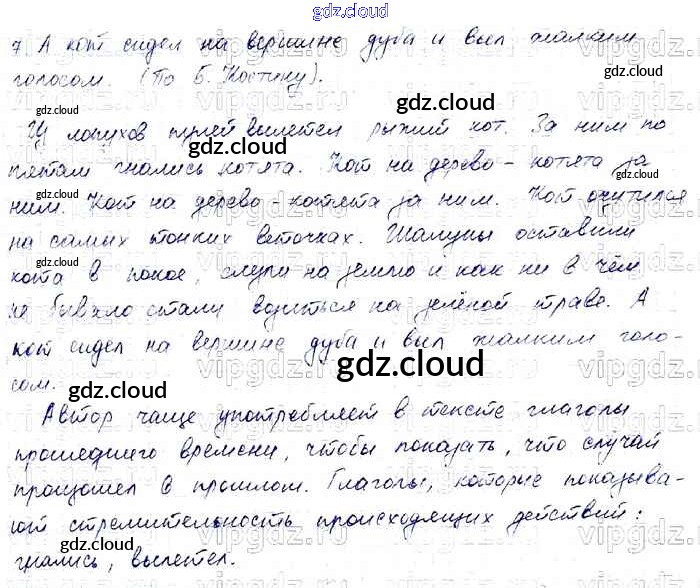 gdz.cloud
7. А кот сидел на вершине дуба и выл жалким
голосом. (По Б. Костину).
Из лопухов пулей вылетел рыжий кот. За ним по
пятам гнались котята. Кот на дерево - котята за
ним. Кот на дерево - котята за ним. Кот очутился
на самых тонких веточках. Шалуны оставили
кота в покое, слезли на землю и как ни в чём
не бывало стали возиться на зелёной траве. А
кот сидел на вершине дуба и выл жалким голо-
сом.
Автор чаще употребляет в тексте глаголы
прошедшего времени, чтобы показать, что случай
произошел в прошлом. Глаголы, которые показыва-
ют стремительность происходящих действий:
гнались, вылетел.